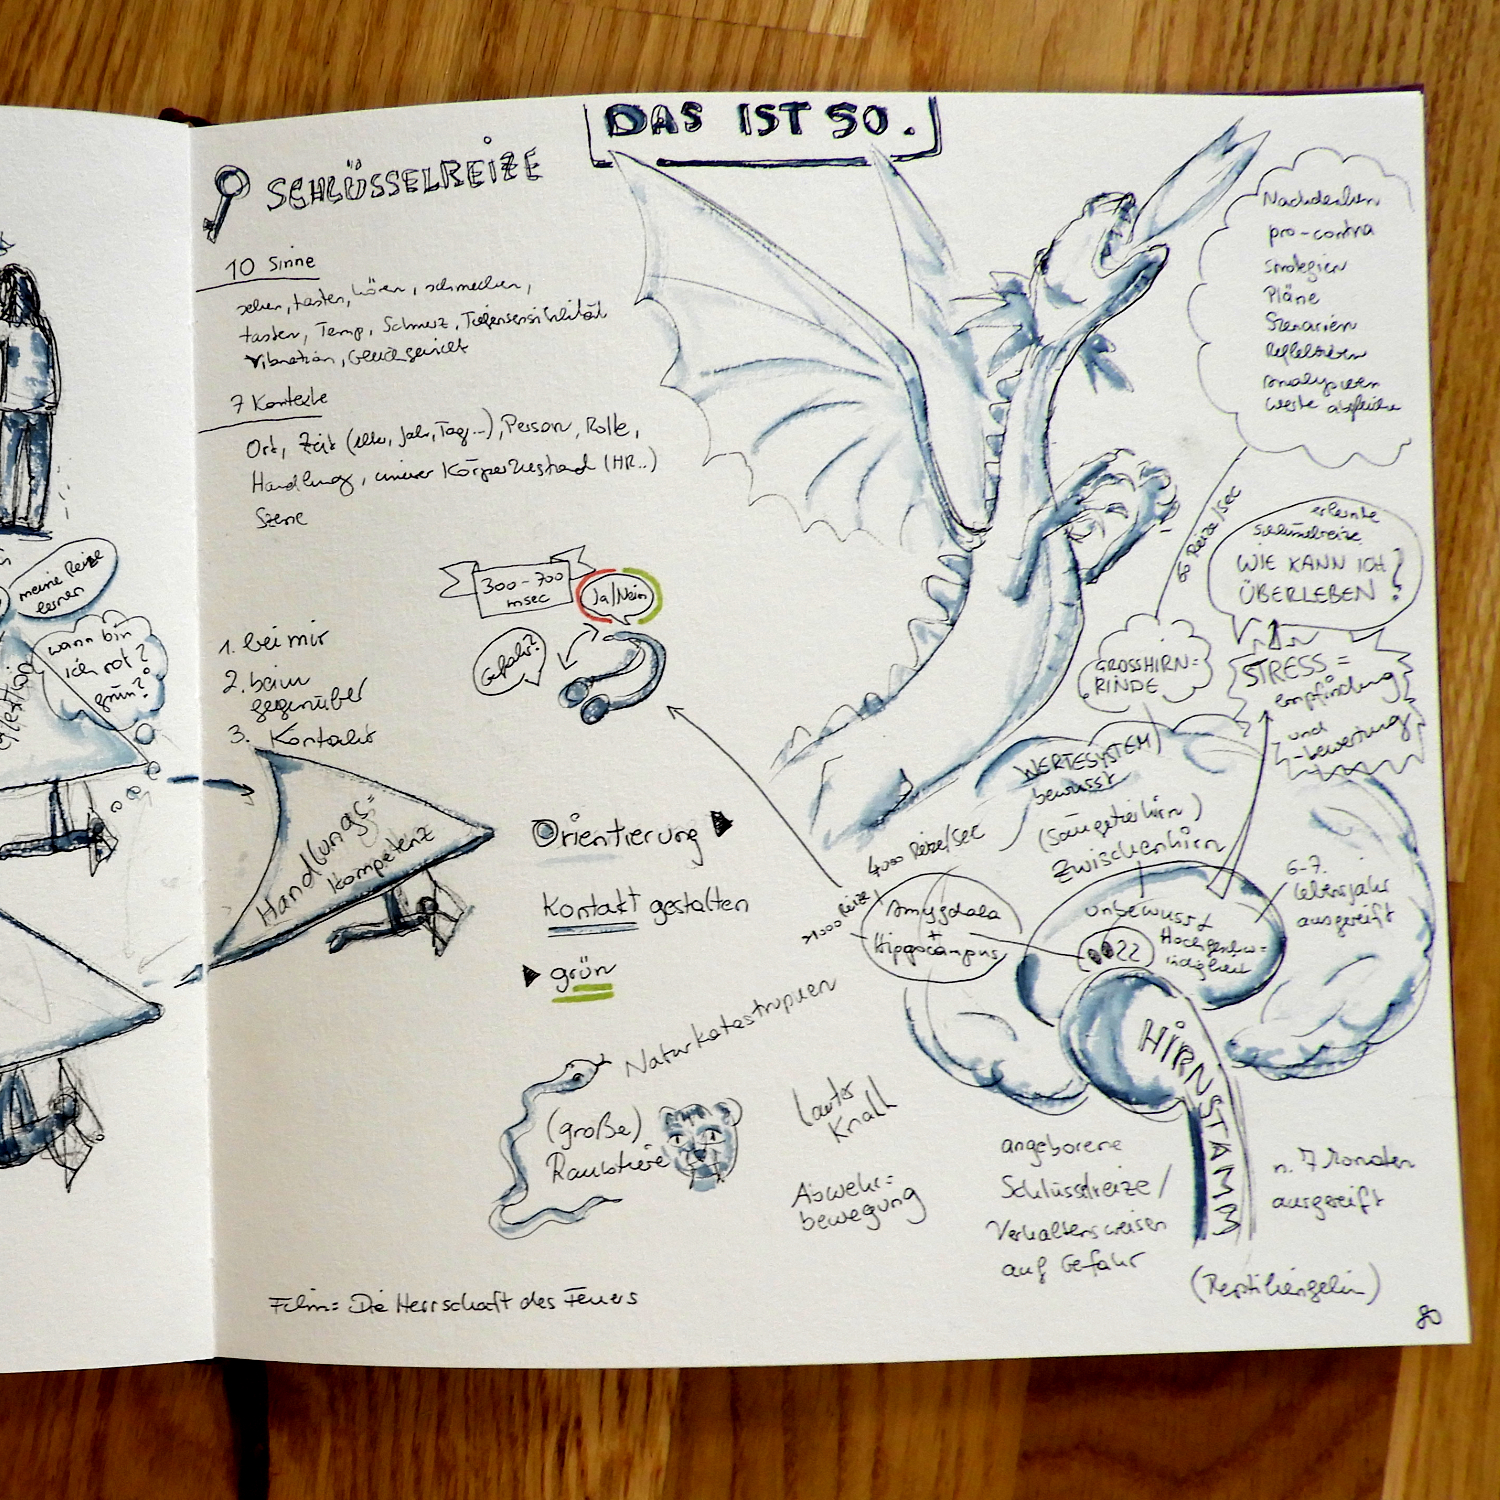 DAS IST SO.
SCHLÜSSELREIZE
10 Sinne
sehen, tasten, hören, schmecken,
tasten, Temp, Schmerz, Tiefensensibilität
Vibration, Gleichgewicht
7 Kontexte
Ort, Zeit (Uhr, Jahr, Tag...), Person, Rolle,
Handlung, innerer Körperzustand (HR..)
Szene
300-700
msec
Ja/Nein
Gefahr?
meine Reize
lernen
wann bin
ich rot?
grün?
1. bei mir
2. beim
gegenüber
3. Kontakt
Handlungs=
kompetenz
Orientierung
Kontakt gestalten
grün
Naturkatastrophen
(große)
Raubtiere
lauter
Knall
Abwehr=
bewegung
Film: Die Herrschaft des Feuers
Nachdenken
pro-contra
Strategien
Pläne
Szenarien
Reflektieren
Analysieren
Werte
Reize/sec
erlernte
Schlüsselreize
WIE KANN ICH
ÜBERLEBEN?
GROSSHIRN=
RINDE
STRESS=
empfindung
und
-bewertung
WERTESYSTEM
bewusst
(Säugetierhirn)
Zwischenhirn
4000 Reize/sec
>1000 Reize
Amygdala
+
Hippocampus
unbewusst
Hochgeschw=
indigkeit
6-7.
Lebensjahr
ausgereift
HIRNSTAMM
angeborene
Schlüsselreize/
Verhaltensweisen
auf Gefahr
n. 7 Monaten
ausgereift
80